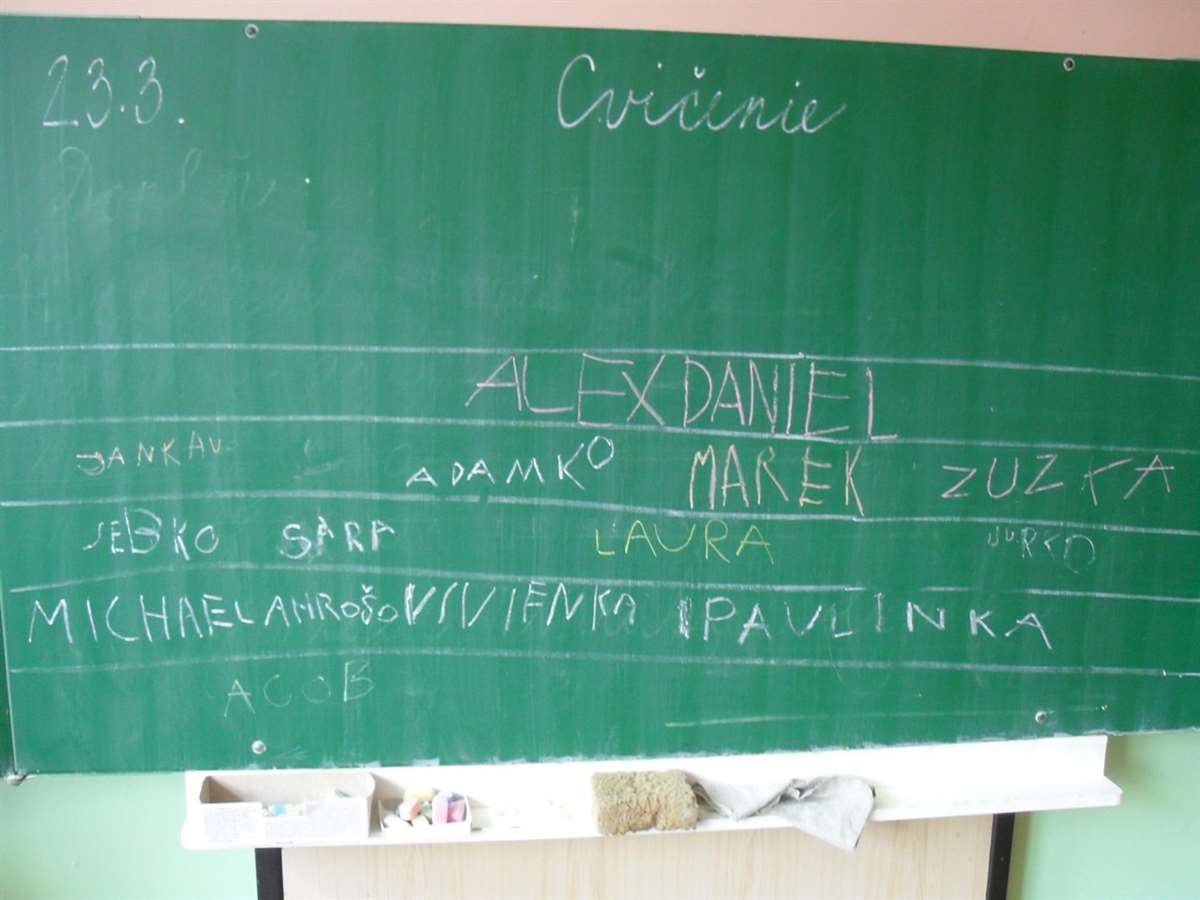 23.3. Cvičenie
ALEX DANIEL
JANKA V. ADAMKO MAREK ZUZKA
SEBKO SÁRA LAURA JURKO
MICHAELA MROŠO VIVIENKA PAULINKA
ACOB